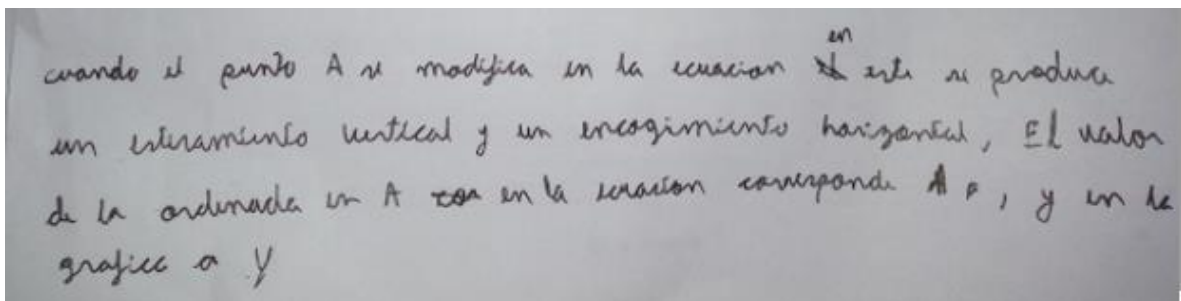 cuando el punto A se modifica en la ecuacion en este se produce
un estiramiento vertical y un encogimiento horizontal, El valor
de la ordenada en A en la ecuacion corresponde A , y en la
grafica a y